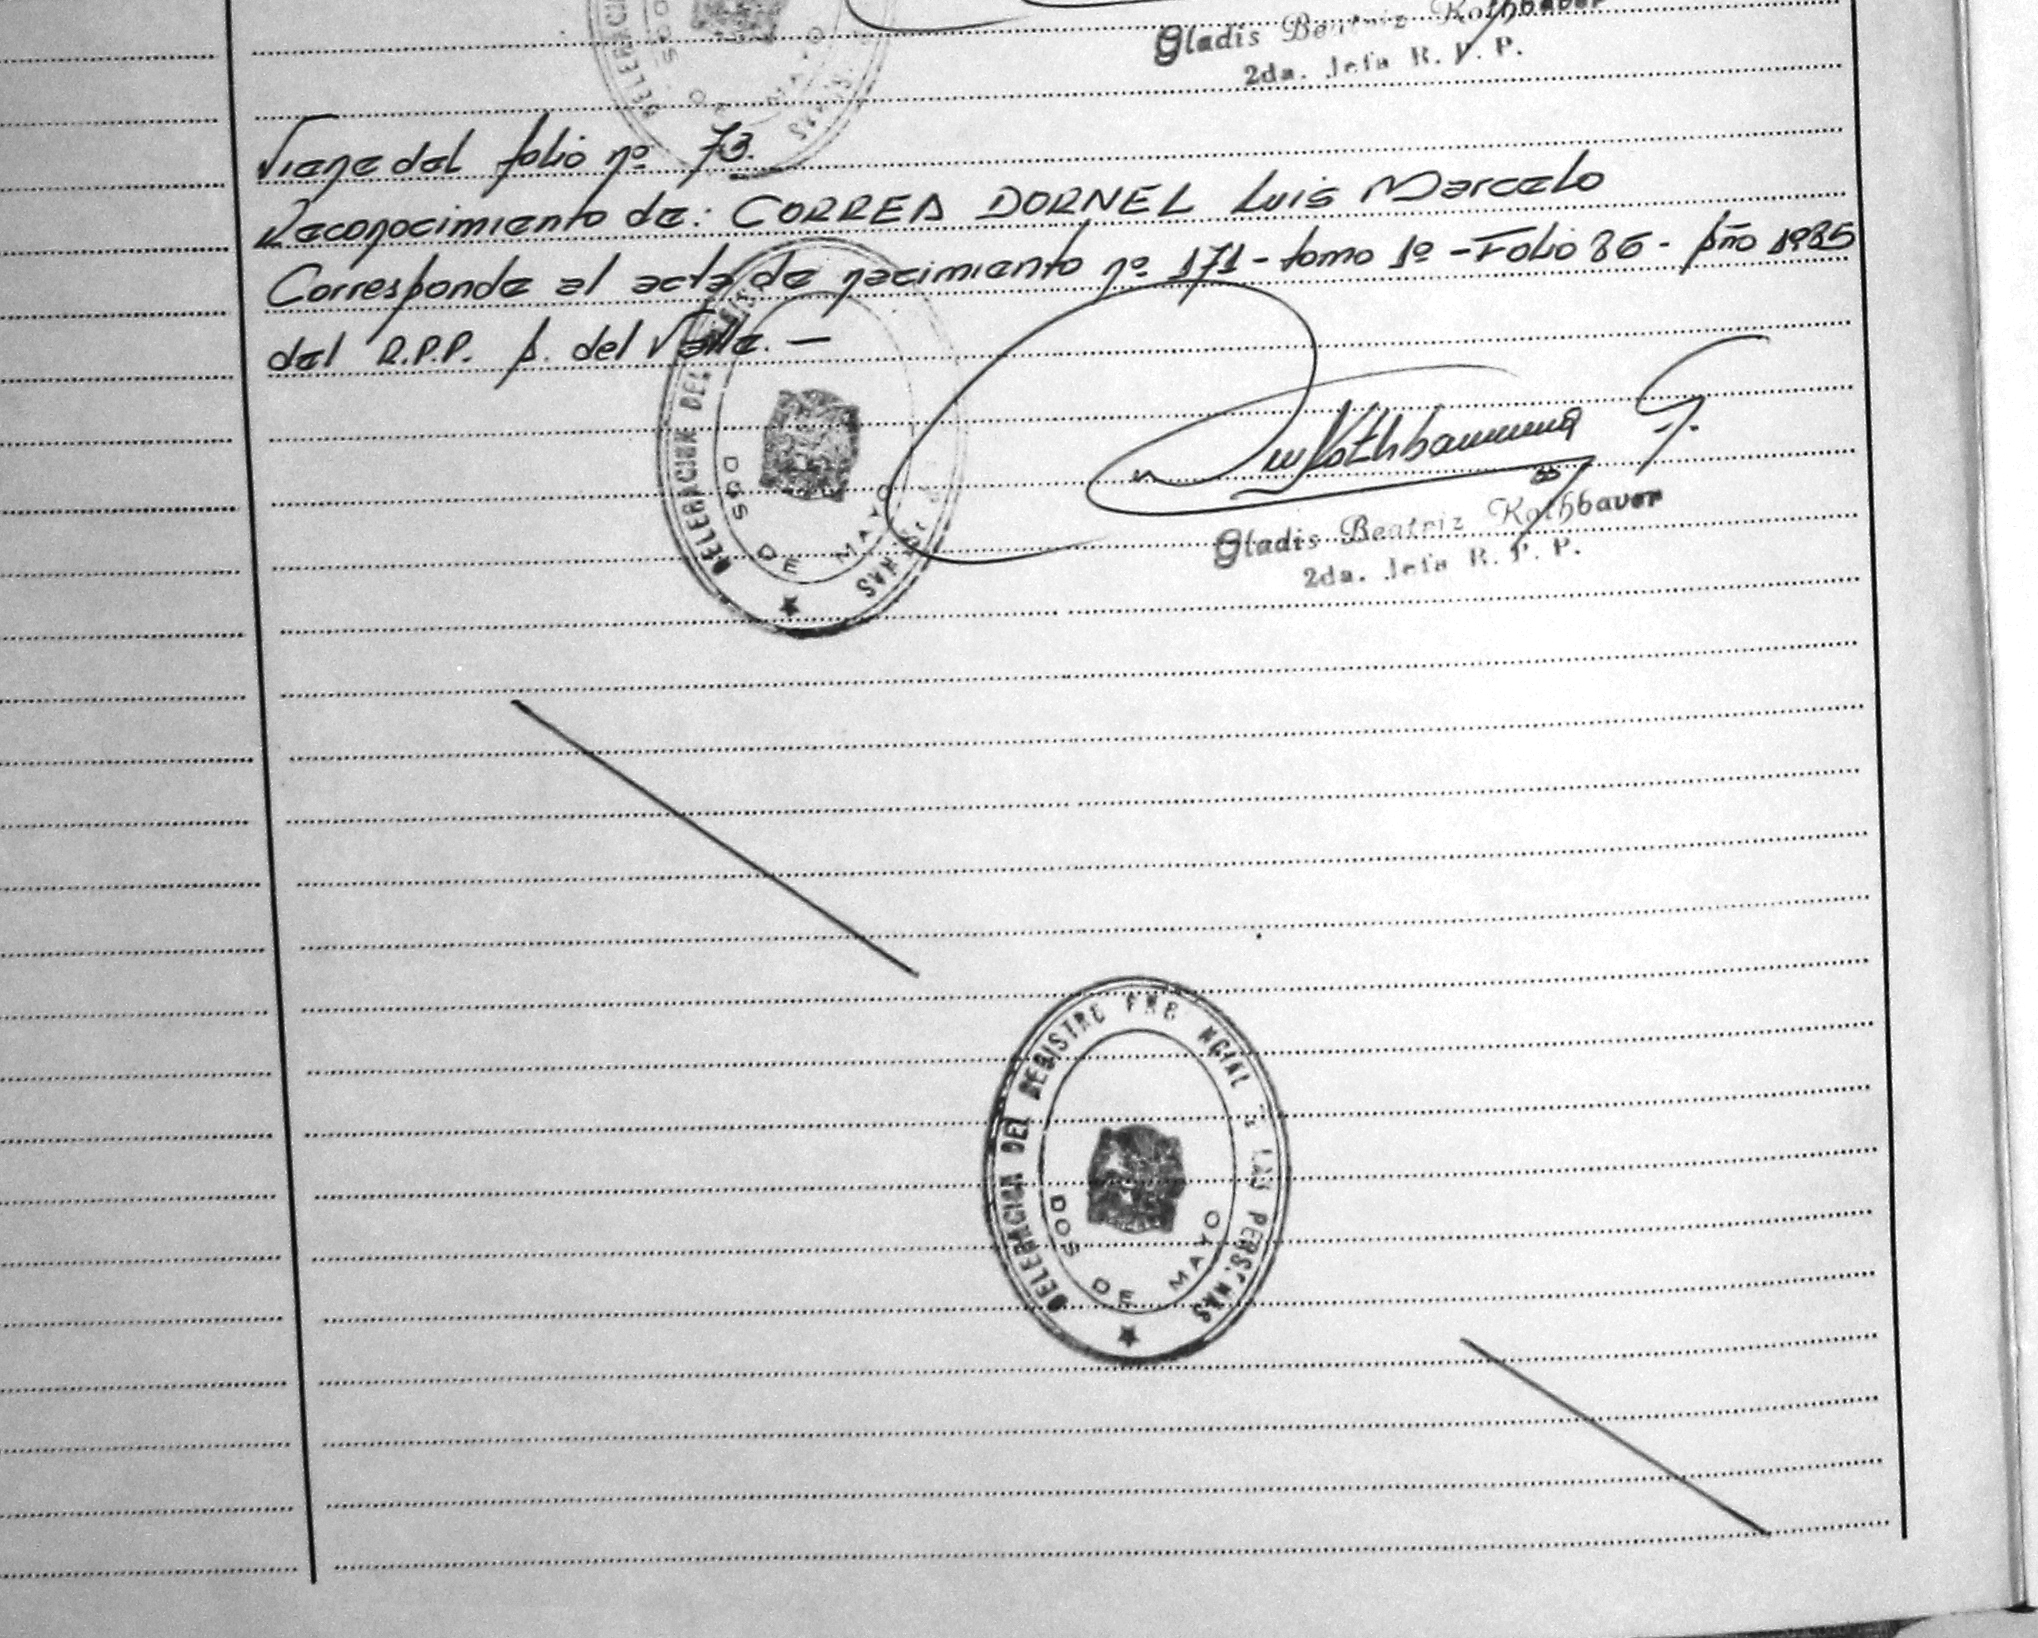 Gladis Beatriz Rothbaver
2da. Jefa R. P. P.
DOS DE MAYO
Viene del folio nº 73.
Reconocimiento de: CORREA DORNEL Luis Marcelo
Corresponde al acta de nacimiento nº 171 - tomo 1º - Folio 86 - Año 1985
del R.P.P. A. del Valle. —
DELEGACION DEL
DOS DE MAYO
Gladis Beatriz Rothbaver
2da. Jefa R. P. P.
DELEGACION DEL REGISTRO PROVINCIAL DE LAS PERSONAS
DOS DE MAYO